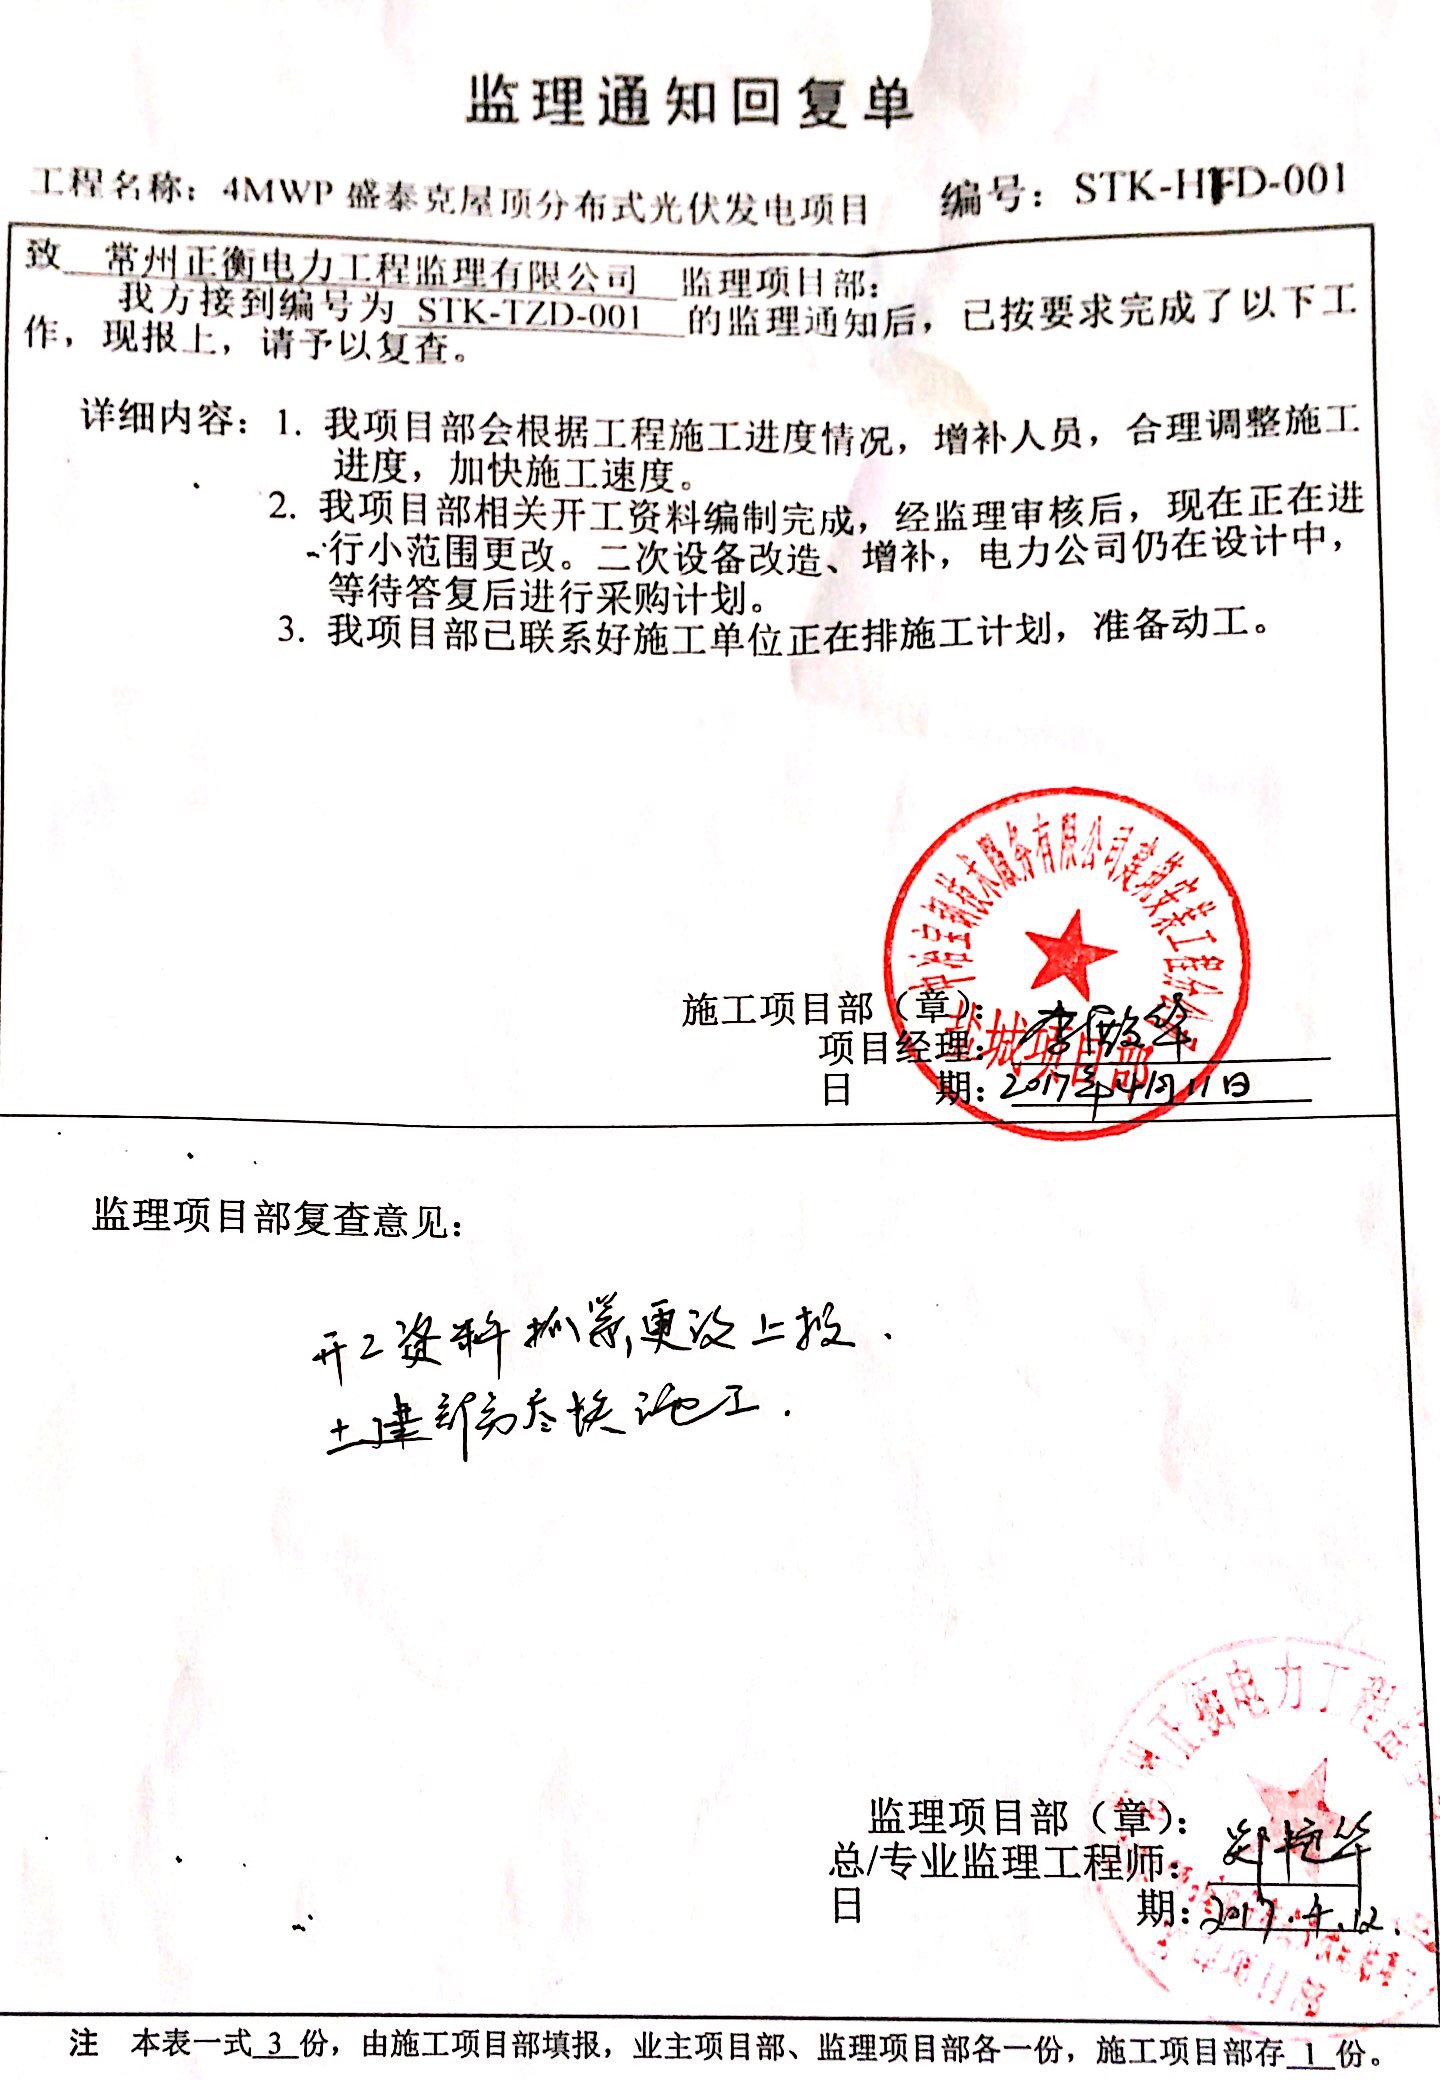 监理通知回复单
工程名称：4MWP 盛泰克屋顶分布式光伏发电项目 编号：STK-HFD-001
致 常州正衡电力工程监理有限公司 监理项目部：
我方接到编号为 STK-TZD-001 的监理通知后，已按要求完成了以下工
作，现报上，请予以复查。
详细内容：1. 我项目部会根据工程施工进度情况，增补人员，合理调整施工
进度，加快施工速度。
2. 我项目部相关开工资料编制完成，经监理审核后，现在正在进
行小范围更改。二次设备改造、增补，电力公司仍在设计中，
等待答复后进行采购计划。
3. 我项目部已联系好施工单位正在排施工计划，准备动工。
中冶宝钢技术服务有限公司建筑安装工程分公司
盐城项目部
施工项目部（章）：
项目经理：李 华
日 期：2017年4月11日
监理项目部复查意见：
开工资料抓紧更改上报.
土建部分尽快施工.
常州正衡电力工程监
监理项目部（章）：
总/专业监理工程师：
日 期：2017.4.12.
注 本表一式 3 份，由施工项目部填报，业主项目部、监理项目部各一份，施工项目部存 1 份。